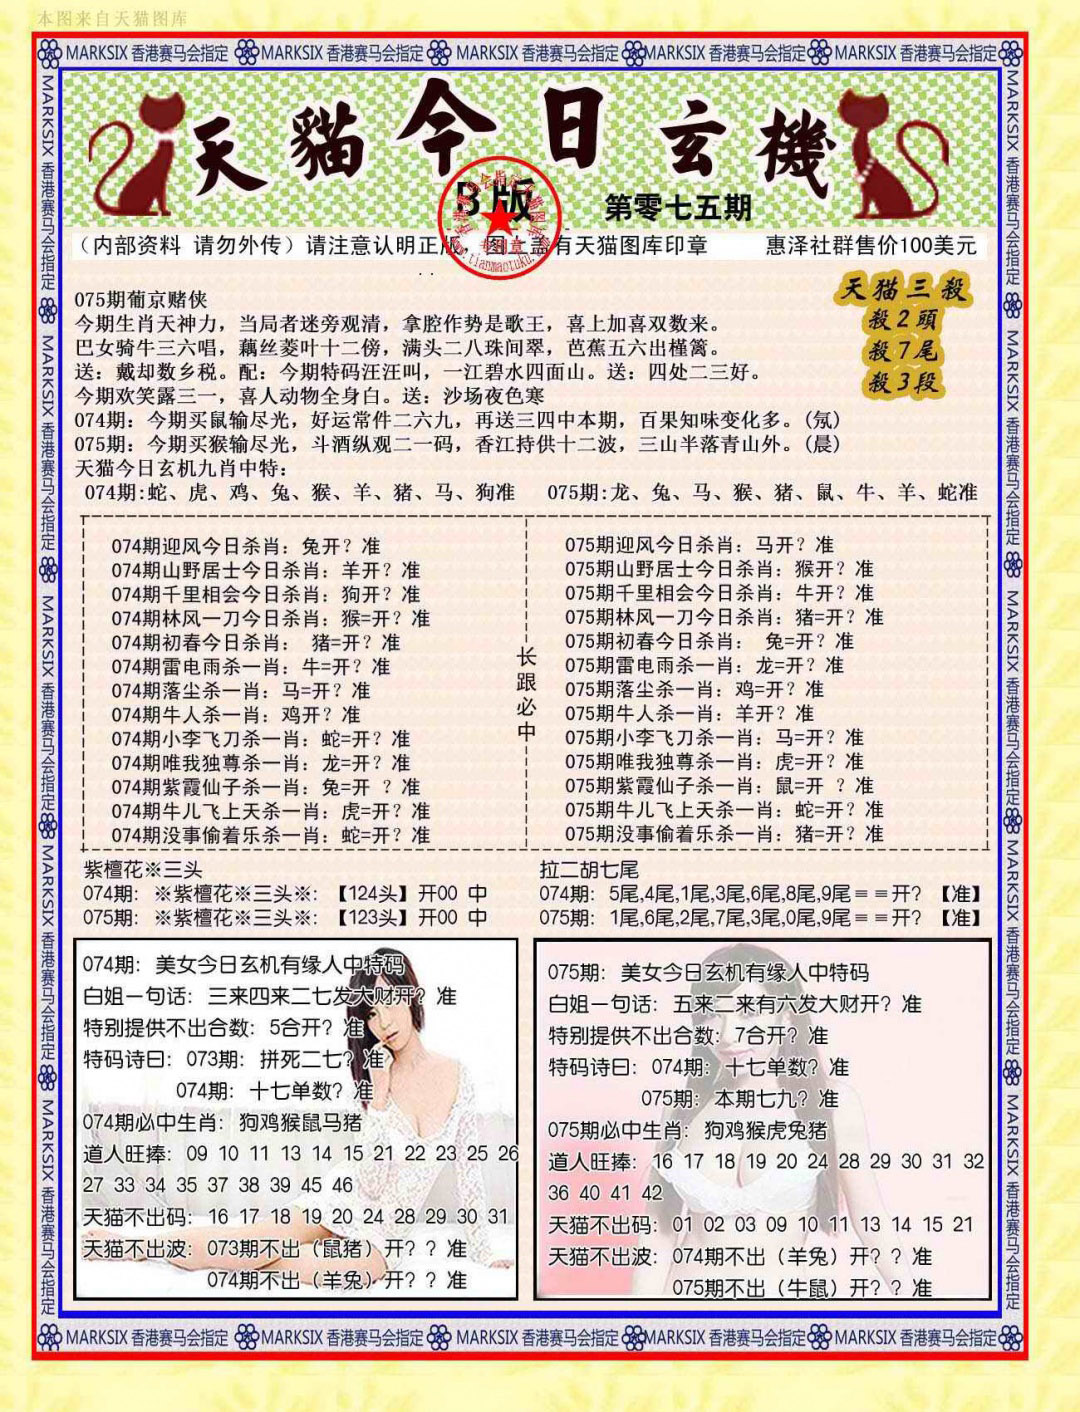 本图来自天猫图库
MARKSIX 香港赛马会指定 MARKSIX 香港赛马会指定 MARKSIX 香港赛马会指定 MARKSIX 香港赛马会指定 MARKSIX 香港赛马会指定
天貓今日玄機
B版
第零七五期
(内部资料 请勿外传) 请注意认明正版, 图上盖有天猫图库印章 惠泽社群售价100美元
www.tianmaotuku.com
075期葡京赌侠
今期生肖天神力，当局者迷旁观清，拿腔作势是歌王，喜上加喜双数来。
巴女骑牛三六唱，藕丝菱叶十二傍，满头二八珠间翠，芭蕉五六出槿篱。
送：戴却数乡税。配：今期特码汪汪叫，一江碧水四面山。送：四处二三好。
今期欢笑露三一，喜人动物全身白。送：沙场夜色寒
074期：今期买鼠输尽光，好运常件二六九，再送三四中本期，百果知味变化多。(氛)
075期：今期买猴输尽光，斗酒纵观二一码，香江持供十二波，三山半落青山外。(晨)
天猫三殺
殺2頭
殺7尾
殺3段
天猫今日玄机九肖中特:
074期:蛇、虎、鸡、兔、猴、羊、猪、马、狗准 075期:龙、兔、马、猴、猪、鼠、牛、羊、蛇准
074期迎风今日杀肖：兔开？准
074期山野居士今日杀肖：羊开？准
074期千里相会今日杀肖：狗开？准
074期林风一刀今日杀肖：猴=开？准
074期初春今日杀肖： 猪=开？准
074期雷电雨杀一肖：牛=开？准
074期落尘杀一肖：马=开？准
074期牛人杀一肖：鸡开？准
074期小李飞刀杀一肖：蛇=开？准
074期唯我独尊杀一肖：龙=开？准
074期紫霞仙子杀一肖：兔=开 ？准
074期牛儿飞上天杀一肖：虎=开？准
074期没事偷着乐杀一肖：蛇=开？准
长跟必中
075期迎风今日杀肖：马开？准
075期山野居士今日杀肖：猴开？准
075期千里相会今日杀肖：牛开？准
075期林风一刀今日杀肖：猪=开？准
075期初春今日杀肖： 兔=开？准
075期雷电雨杀一肖：龙=开？准
075期落尘杀一肖：鸡=开？准
075期牛人杀一肖：羊开？准
075期小李飞刀杀一肖：马=开？准
075期唯我独尊杀一肖：虎=开？准
075期紫霞仙子杀一肖：鼠=开 ？准
075期牛儿飞上天杀一肖：蛇=开？准
075期没事偷着乐杀一肖：猪=开？准
紫檀花※三头
074期: ※紫檀花※三头※: 【124头】开00 中
075期: ※紫檀花※三头※: 【123头】开00 中
拉二胡七尾
074期: 5尾,4尾,1尾,3尾,6尾,8尾,9尾==开? 【准】
075期: 1尾,6尾,2尾,7尾,3尾,0尾,9尾==开? 【准】
074期: 美女今日玄机有缘人中特码
白姐一句话: 三来四来二七发大财开? 准
特别提供不出合数: 5合开? 准
特码诗曰: 073期: 拼死二七? 准
074期: 十七单数? 准
074期必中生肖: 狗鸡猴鼠马猪
道人旺捧: 09 10 11 13 14 15 21 22 23 25 26
27 33 34 35 37 38 39 45 46
天猫不出码: 16 17 18 19 20 24 28 29 30 31
天猫不出波: 073期不出 (鼠猪) 开? ? 准
074期不出 (羊兔) 开? ? 准
075期: 美女今日玄机有缘人中特码
白姐一句话: 五来二来有六发大财开? 准
特别提供不出合数: 7合开? 准
特码诗曰: 074期: 十七单数? 准
075期: 本期七九? 准
075期必中生肖: 狗鸡猴虎兔猪
道人旺捧: 16 17 18 19 20 24 28 29 30 31 32
36 40 41 42
天猫不出码: 01 02 03 09 10 11 13 14 15 21
天猫不出波: 074期不出 (羊兔) 开? ? 准
075期不出 (牛鼠) 开? ? 准
MARKSIX 香港赛马会指定 MARKSIX 香港赛马会指定 MARKSIX 香港赛马会指定 MARKSIX 香港赛马会指定 MARKSIX 香港赛马会指定